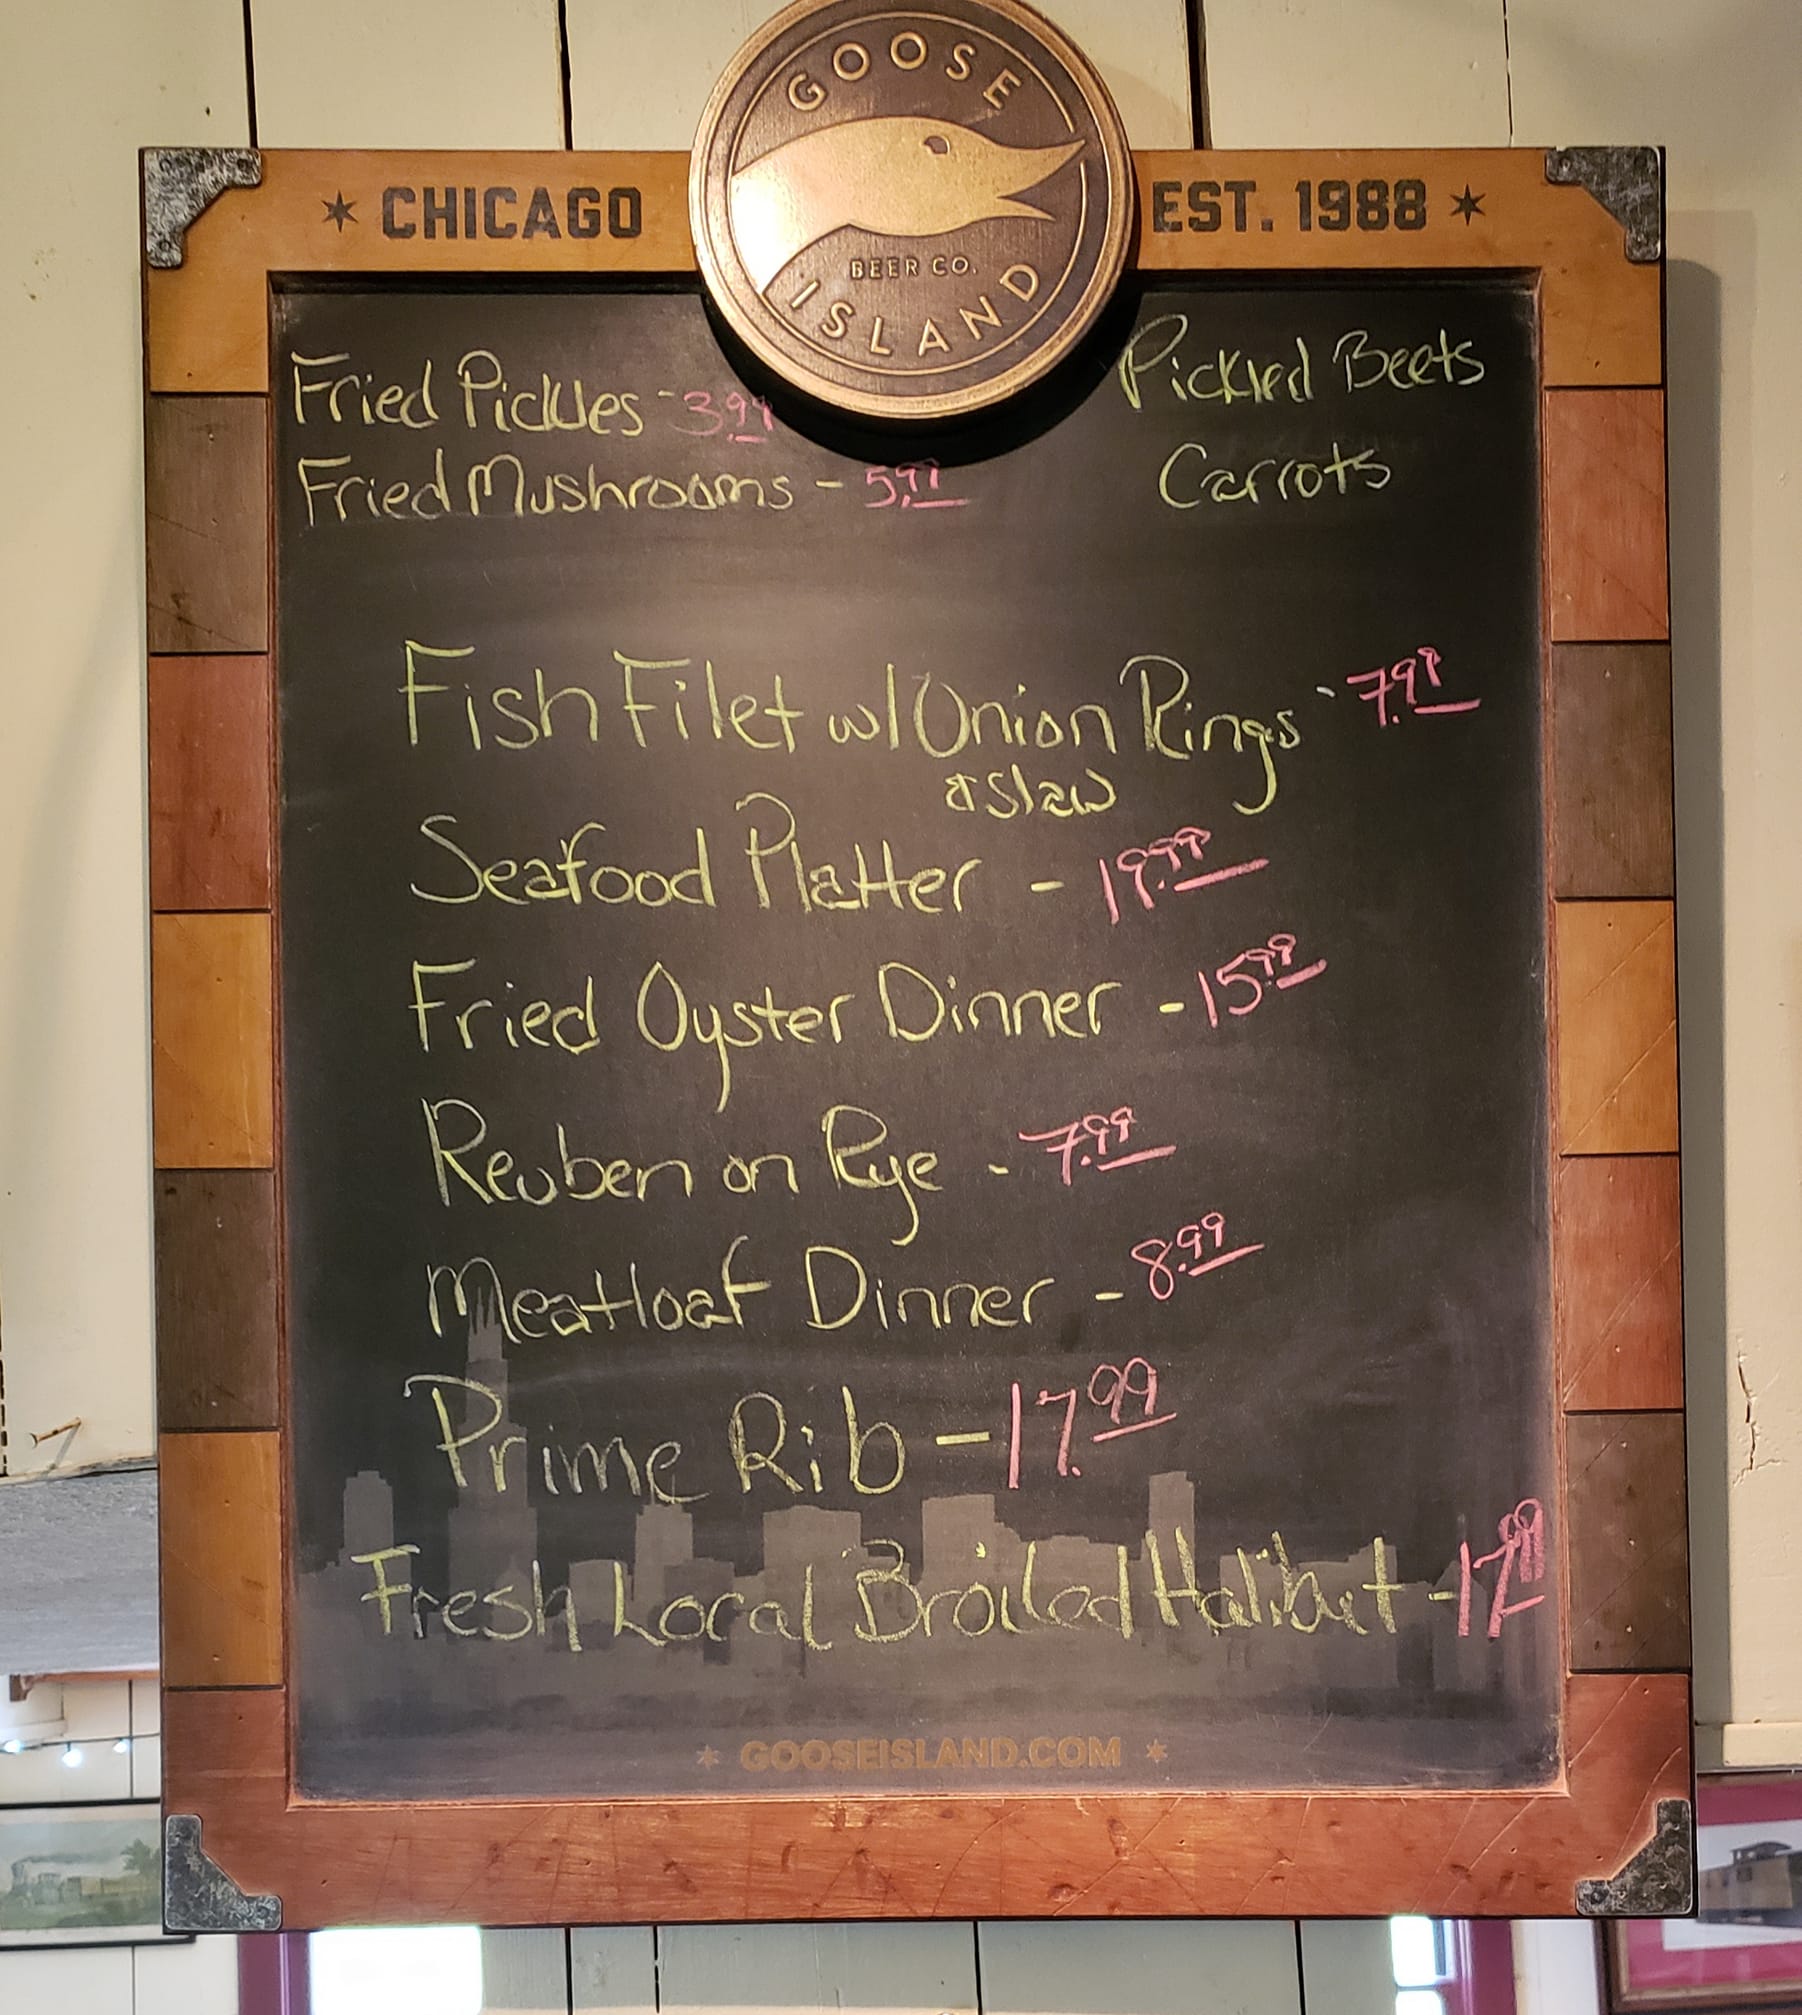 GOOSE
BEER CO.
ISLAND
CHICAGO
EST. 1988
Fried Pickles - 3.99
Fried Mushrooms - 5.99
Pickled Beets
Carrots
Fish Filet w/ Onion Rings - 7.99
& Slaw
Seafood Platter - 19.99
Fried Oyster Dinner - 15.99
Reuben on Rye - 7.99
Meatloaf Dinner - 8.99
Prime Rib - 17.99
Fresh Local Broiled Halibut - 17.99
GOOSEISLAND.COM